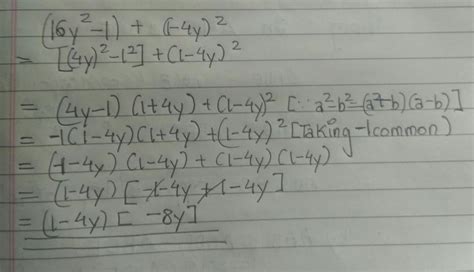 (16y²-1) + (-4y)²
= [(4y)²-1²] + (1-4y)²
= (4y-1) (1+4y) + (1-4y)² [∵ a²-b² = (a+b)(a-b)]
= -1(1-4y)(1+4y) + (1-4y)² [Taking -1 common)
= (1-4y) (-1-4y) + (1-4y)(1-4y)
= (1-4y) [-1-4y+1-4y]
= (1-4y) [-8y]